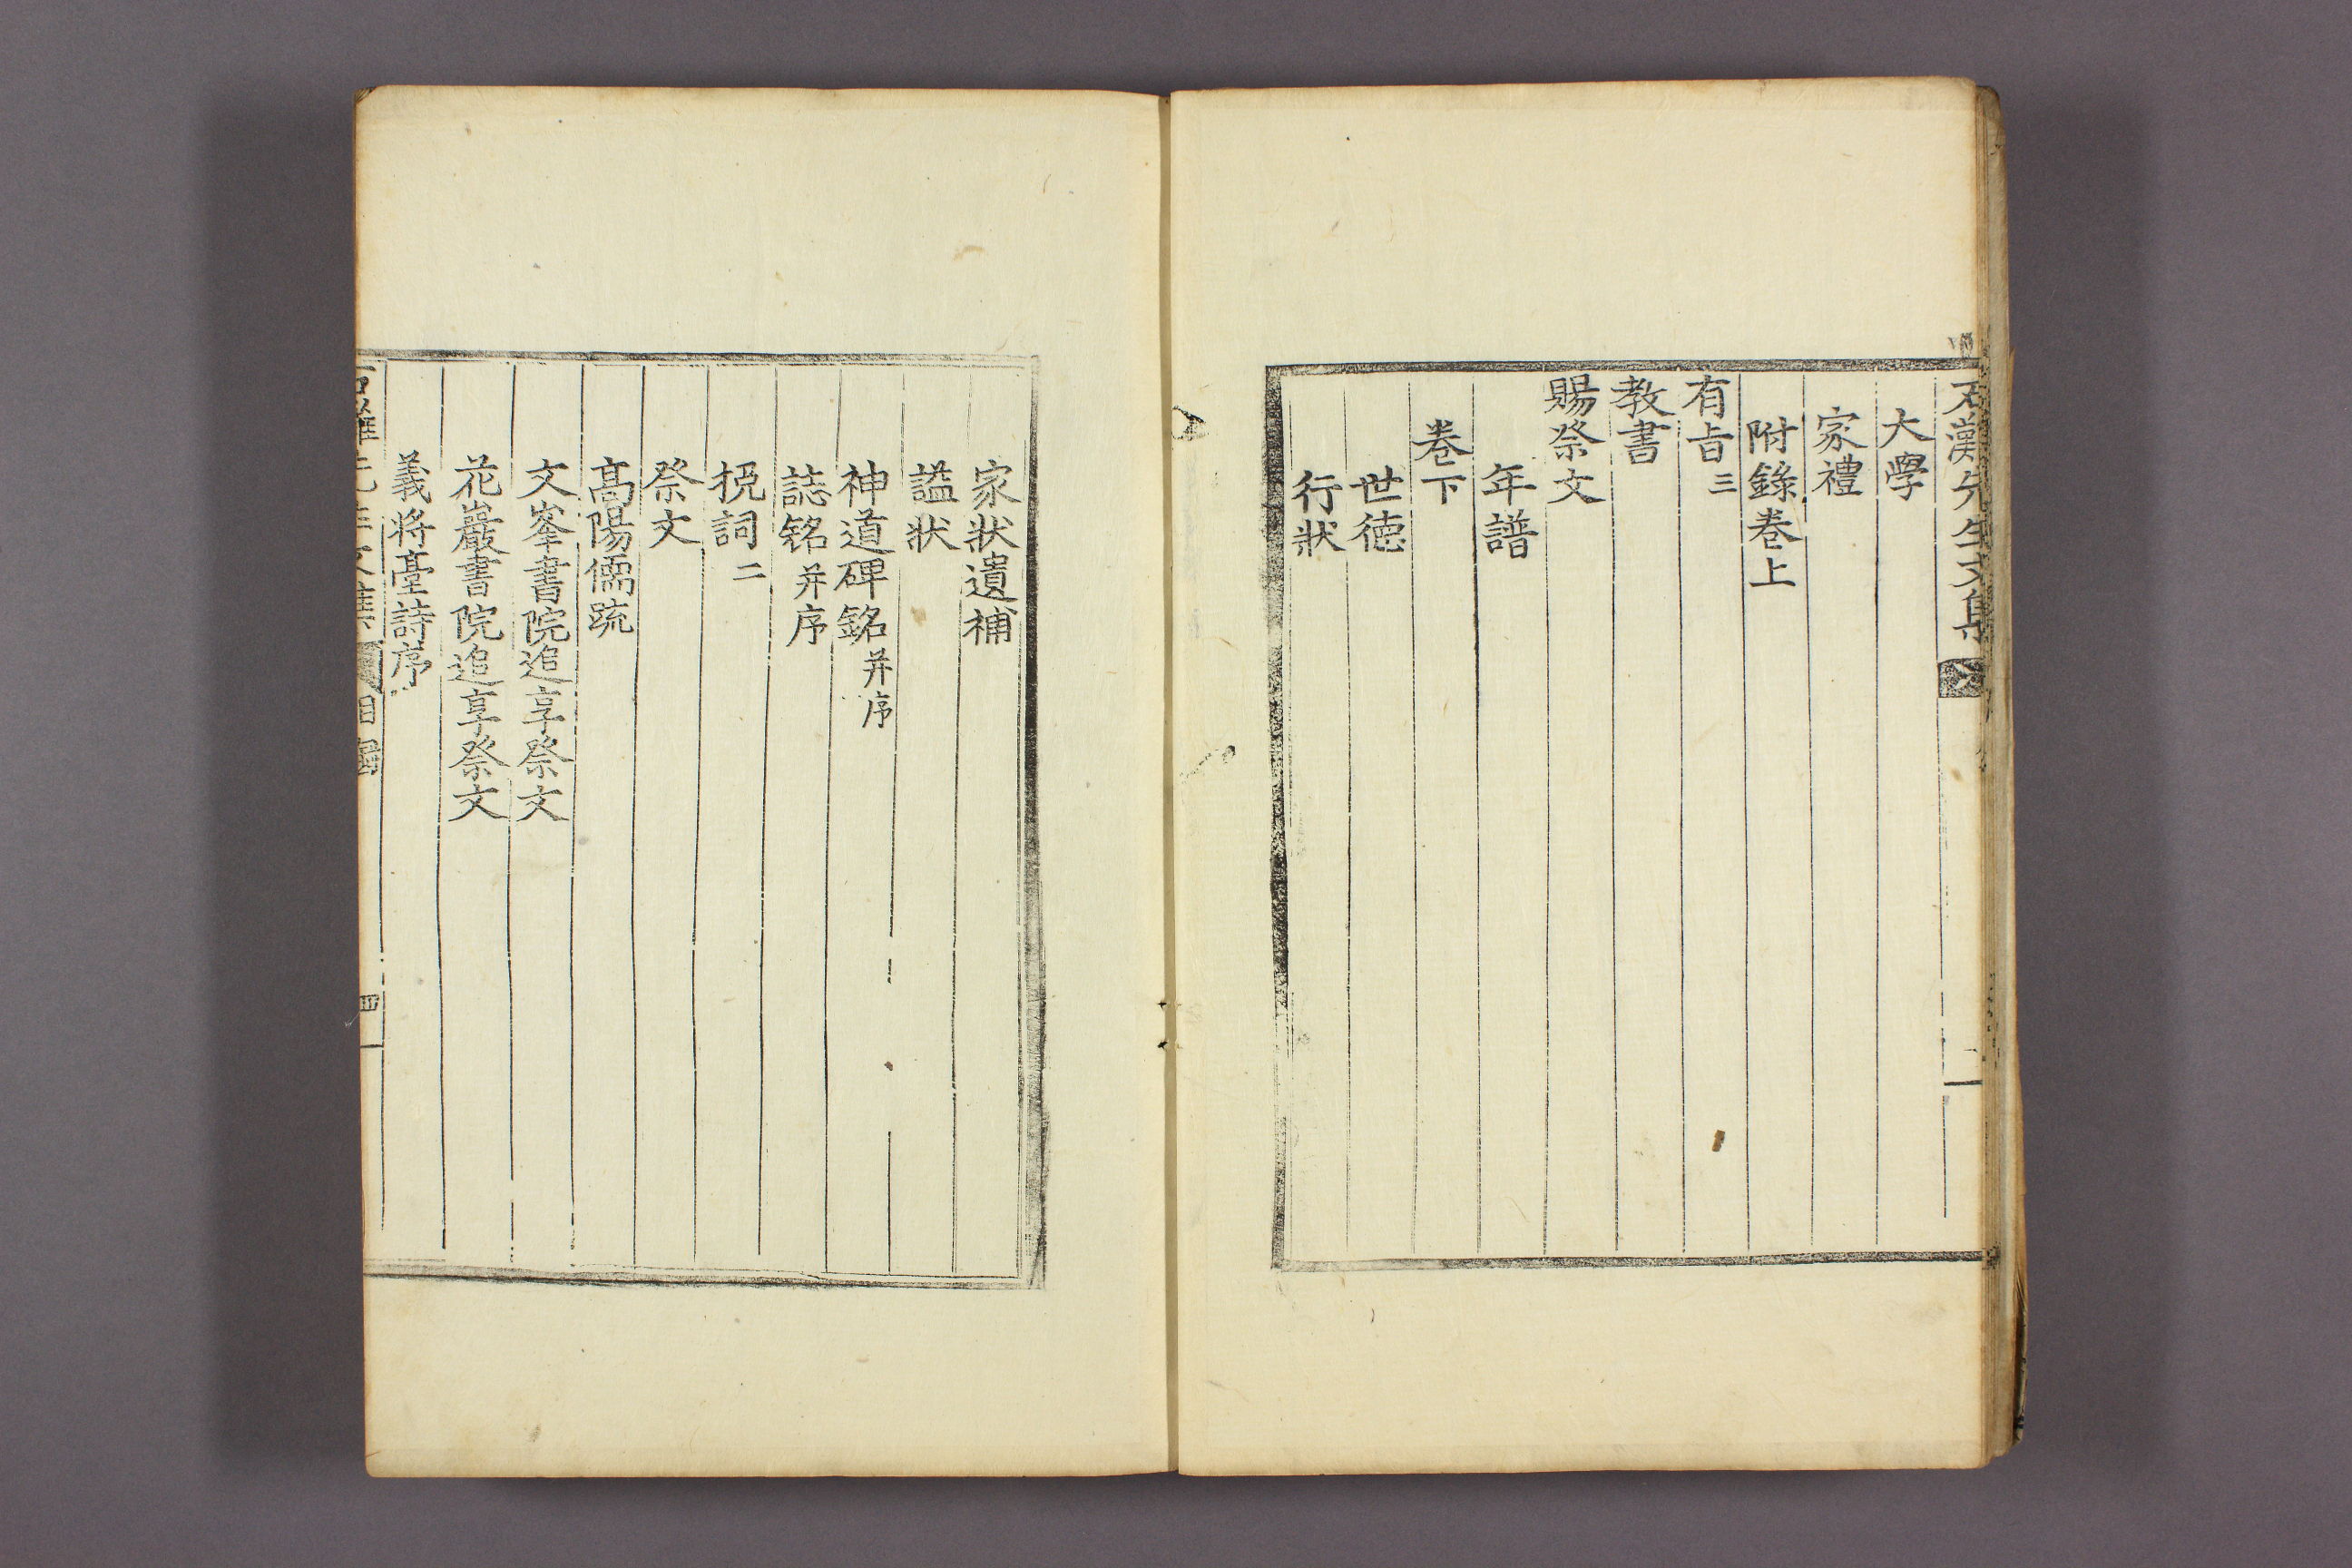 石灘先生文集
大學
家禮
附錄卷上
有旨三
教書
賜祭文
年譜
卷下
世德
行狀
家狀遺補
諡狀
神道碑銘并序
誌銘并序
挽詞二
祭文
高陽儒疏
文峯書院追享祭文
花巖書院追享祭文
義將臺詩序